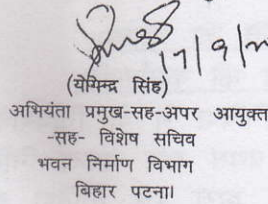 17/9/
(योगेन्द्र सिंह)
अभियंता प्रमुख-सह-अपर आयुक्त
-सह- विशेष सचिव
भवन निर्माण विभाग
बिहार पटना।